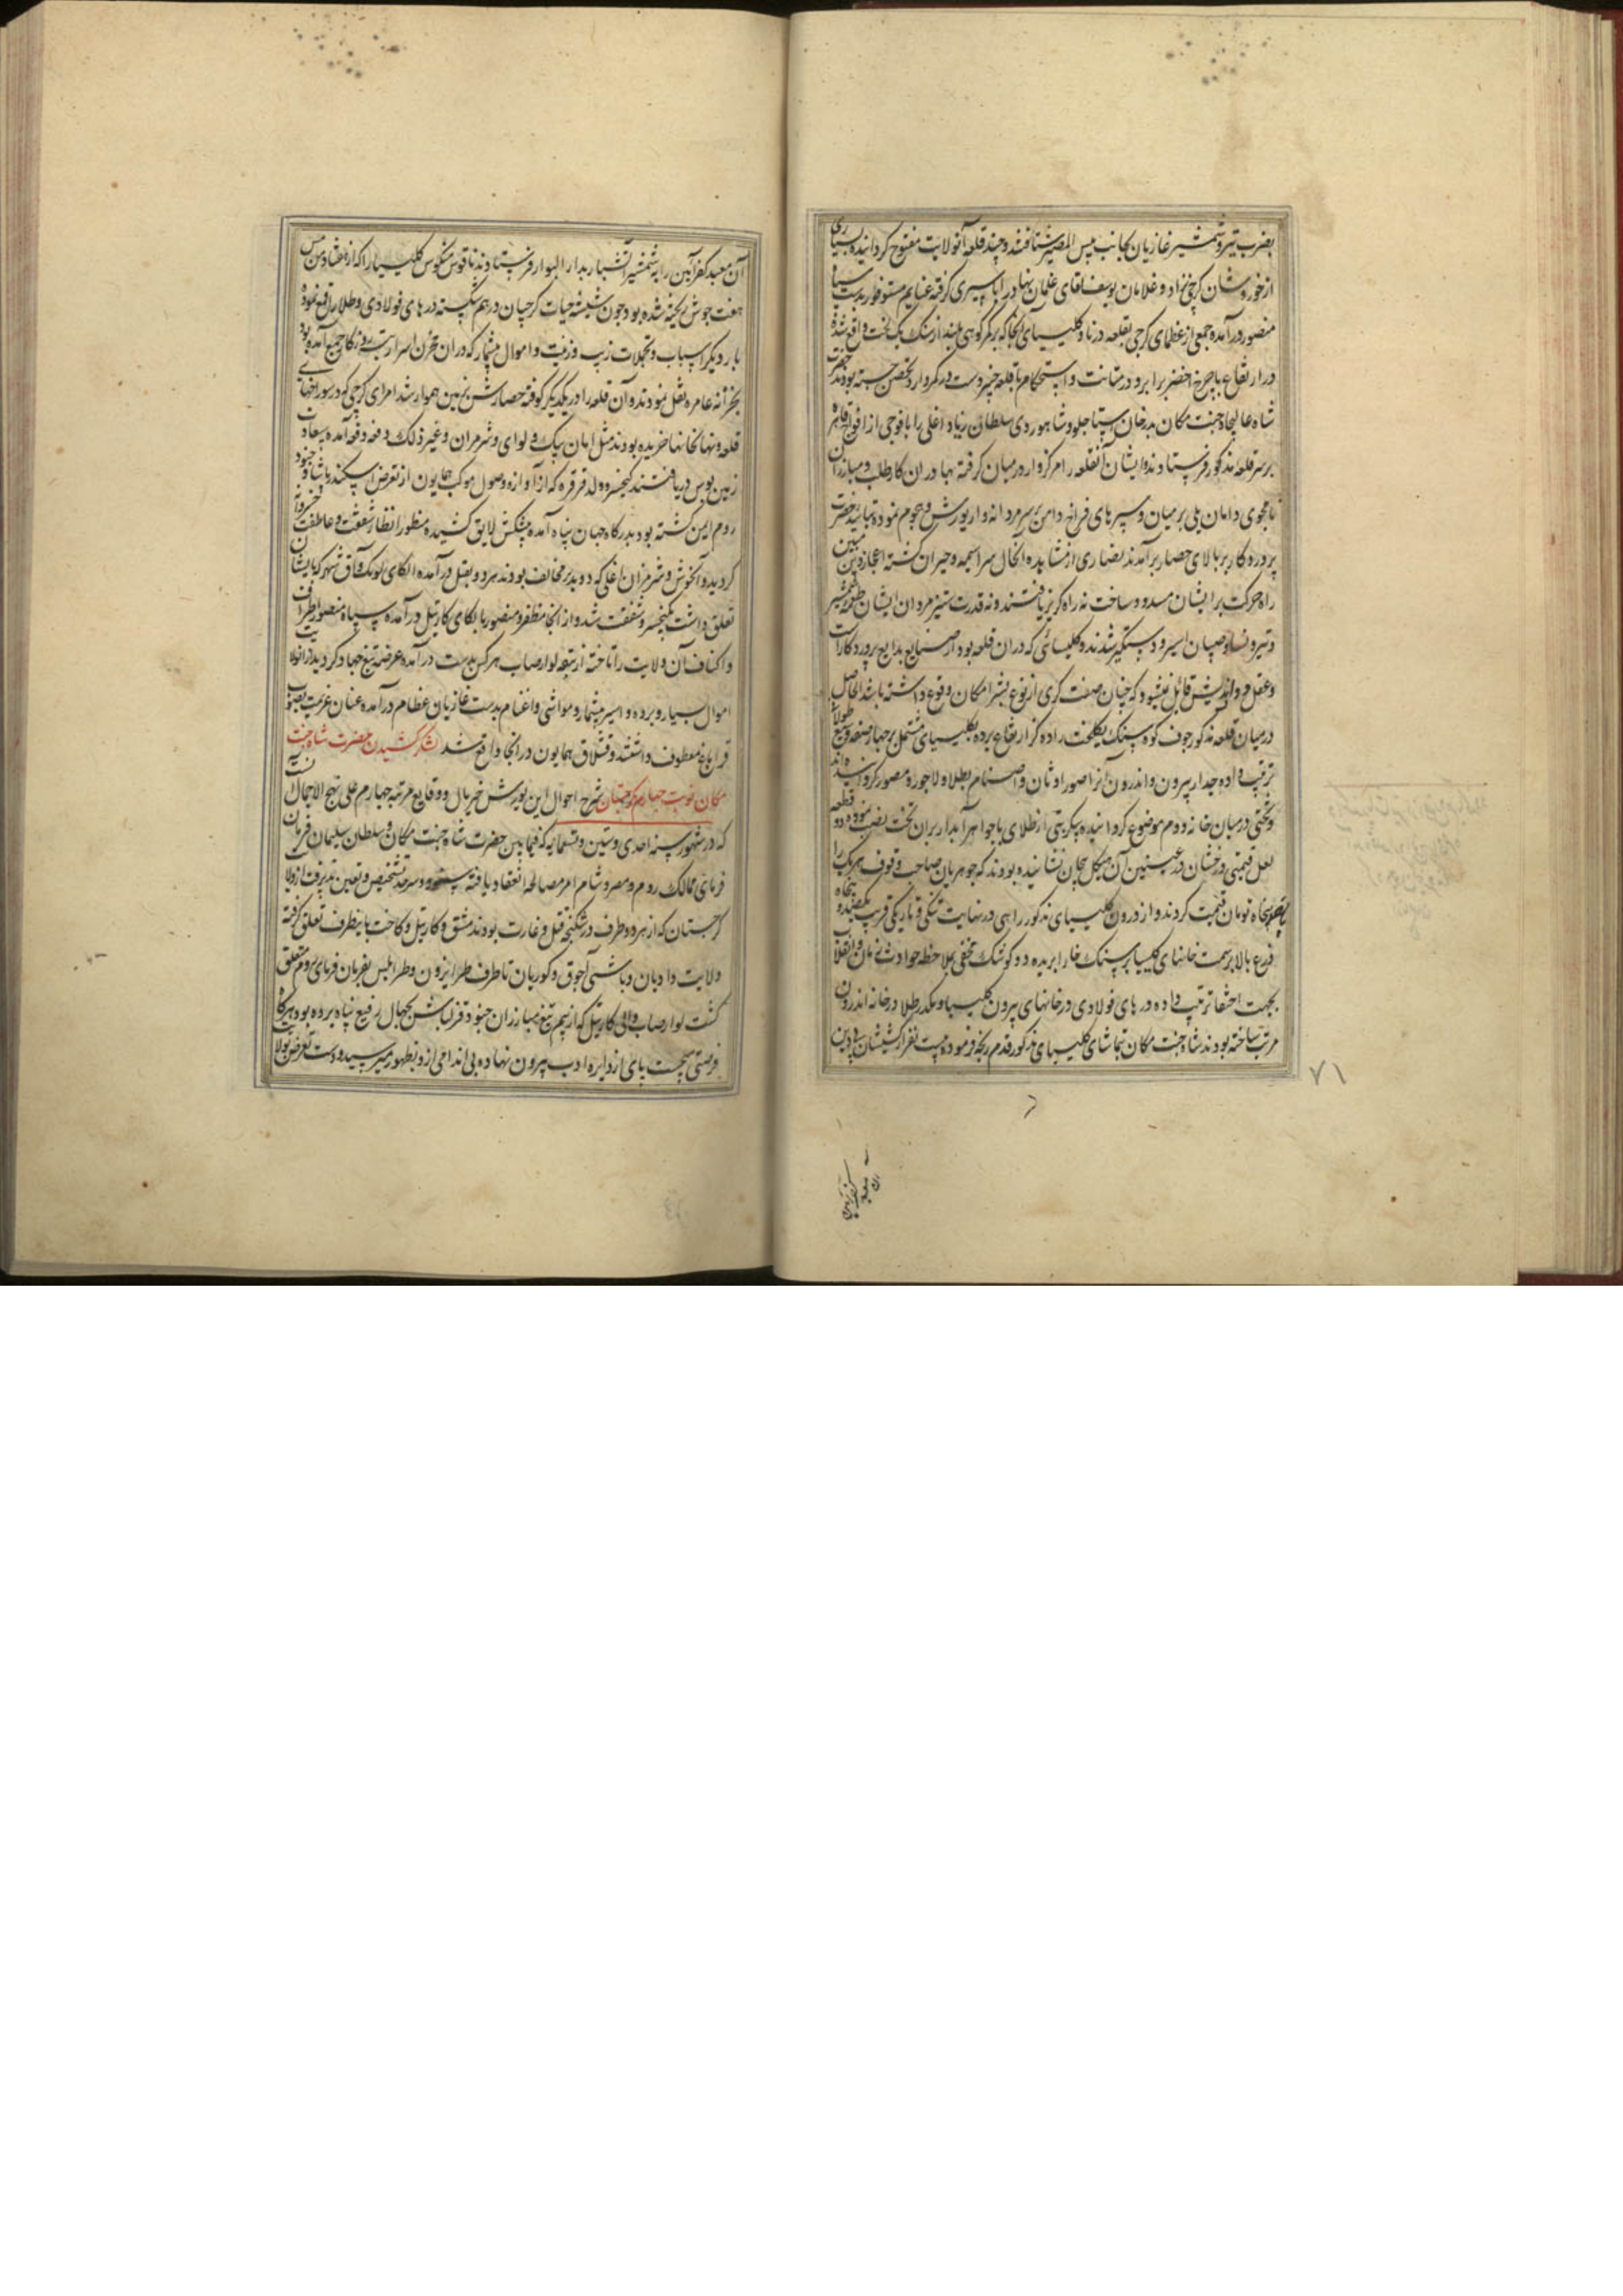 بضرب تیر و شمشیر غازیان بجانب پس المصیر شتافتند و چند قلعه آنولایت مفتوح کردانیده بسیاری
از خوروشان کرجی نژاد و غلامان یوسف لقای غلمان نهاد را باسیری کرفته غنایم مستوفور بدست سپاه
منصور درآمده جمعی از عظمای کرجی بقلعه درناد و کلیسیای آنجا که بر کمر کوهی بلند از سنک یک لخت واقع شده
در ارتفاع با چرخ اخضر برابر و در متانت و استحکام با قلعه خیبر وست در کمر دارد تحصن جسته بودند حضرت
شاه عالیجاه جنت مکان بدرخان استاجلو و شاهوردی سلطان زیاد اغلی را با فوجی از افواج قاهره
بر سر قلعه مذکور فرستادند و ایشان آنقلعه را مرکزوار در میان کرفته بهادران کار طلب و مبارزان
نامجوی دامان یلی بر میان و سپرهای فراخ دامن بر سر مردانه وار یورش و هجوم نموده بتایید حضرت
پروردکار بر بالای حصار برآمدند نصاری از مشاهده آنحال سراسیمه و حیران کشته اعجاز دین مبین
راه حرکت بر ایشان مسدود ساخت نه راه کریز یافتند و نه قدرت ستیز مردان ایشان طعمه شمشیر
و تیر و نسا و صبیان اسیر و دستکیر شدند و کلیسائی که در ان قلعه بود از صنایع بدایع پرورد کار است
و عقل دور اندیش قائل نمیشود که چنان صنعت کری از نوع بشر امکان وقوع داشته باشد الحاصل
در میان قلعه مذکور جوف کوه سنک یکلخت را ده کز ارتفاع برده کلیسیای مشتمل بر چهار صفه وسیع طولانی
ترتیب داده جدار بیرون و اندرون آنرا صور اوثان و اصنام بطلا و لاجورد مصور کردانیده اند
و تختی در میان خانه دوم موضوع کردانیده پیکر بتی از طلای با جواهر آبدار بران تخت نصب نموده دو قطعه
لعل قیمتی درخشان در عینین آن هیکل بیجان نشانیده بودند که جوهریان صاحب وقوف هر یک را
پنجاه تومان قیمت کردند و از درون کلیسیای مذکور راهی در نهایت تنکی و تاریکی قریب یکصد و پنجاه
ذرع بالا بر سمت خانهای کلیسیا بر سنک خارا بریده دو کوشک مخفی بملاحظه حوادث زمان و انقلاب
بجهت اختفا ترتیب داده درهای فولادی در خانهای بیرون کلیسیا و یکدر طلا در خانه اندرون
مرتب ساخته بودند شاه جنت مکان بتماشای کلیسیای مذکور قدم رنجه فرموده بیست نفر از کشیشان بیدین
۷۱
آن معبد کفر آیین
آن معبد کفر آیین را بشمشیر آتشبار بدار البوار فرستادند ناقوس منکوس کلیسیا را که از هفتاد من مس
هفت جوش ریخته شده بود چون شیشه حیات کرجیان در هم شکسته درهای فولادی و طلا را قلع نموده
با دیکر اسباب و تجملات زیب و زینت و اموال بیشمار که در ان مخزن اسرار بت روزکار جمع آمده بود
بخزانه عامره نقل نمودند و آن قلعه را در یکدیکر کوفته حصارش بزمین هموار شد امرای کرجی که در سوراخهای
قلعه و نهانخانها خزیده بودند مثل امان بیک ولد لوای و شرمزان و غیر ذلک دفعه دفعه آمده سعادت
زمین بوس دریافتند کیخسرو ولد قرقره که از آوازه وصول موکب همایون از تعرض اسکندر پاشا و جنود
روم ایمن کشته بود بدرکاه جهان پناه آمده پیشکش لایق کشیده منظور انظار شفقت و عاطفت خسروانه
کردید و آلخوش و شرمزان اغلی که دو بدر مخالف بودند هر دو بقتل درآمده الکای تونک و آق شهر که بایشان
تعلق داشت بکیخسرو شفقت شد و از آنجا مظفر و منصور بالکای کارتیل درآمده سپاه منصور اطراف
و اکناف آن ولایت را تاخته از تبعه لوارصاب هر کس بدست درآمده عرضه تیغ جهاد کردید از آنولایت
اموال بسیار و برده و اسیر بیشمار و مواشی و اغنام بدست غازیان عظام درآمده عنان عزیمت بصوب
قراباغ معطوف داشتند و قشلاق همایون در انجا واقع شد لشکر کشیدن حضرت شاه جنت
مکان نوبت چهارم بکرجستان شرح احوال این یورش خیر مال و وقایع مرتبه چهارم علی نهج الاجمال آنست
که در شهور سنه احدی و ستین و تسعمایه که فیمابین حضرت شاه جنت مکان و سلطان سلیمان فرمان
فرمای ممالک روم و مصر و شام امر مصالحه انعقاد یافته و سرحد تشخیص و تعیین پذیرفت از ولایت
کرجستان که از هر دو طرف در شکنجه قتل و غارت بودند مشق و کارتیل و کاخت باینطرف تعلق کرفته
ولایت دادیان و باشی آجوق و کوریان تا طرف طرابزون و طرابلس بفرمان فرمای روم متعلق
کشت لوارصاب والی کارتیل که از بیم تیغ مبارزان جنود قزلباش بجبال رفیع پناه برده بود هرکاه
فرصتی میجست پای از دایره ادب بیرون نهاده بی اندامی ازو بظهور میرسید و دست تعرض بولایت